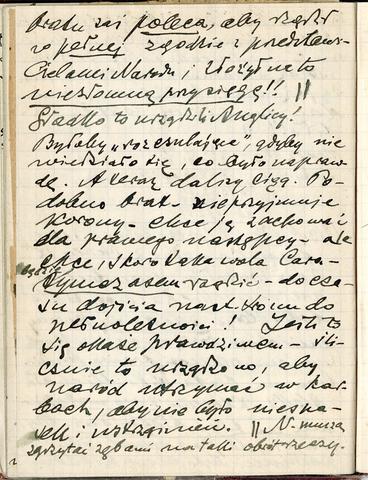 bratu zaś poleca, aby rządził
w pełnej zgodzie z przedstawi-
cielami Narodu i złożył na to
niezłomną przysięgę!! ||
Gładko to urządzili Anglicy!
Byłoby „rozczulające", gdyby nie
wiedziało się, co było napraw-
dę. A teraz dalszy ciąg. Po-
dobno brat - nie przyjmuje
korony - chce ją zachować
dla prawego następcy - ale
chce, skoro taka wola Cara -
tymczasem rządzić - do cza-
su dojścia nast. tronu do
pełnoletności! Jeśli to
się okaże prawdziwem - śli-
cznie to urządzono, aby
naród utrzymać w kar-
bach, aby nie było niesna-
sek i wstrząśnień. || N. muszą
zgrzytać zębami na taki obrót rzeczy.